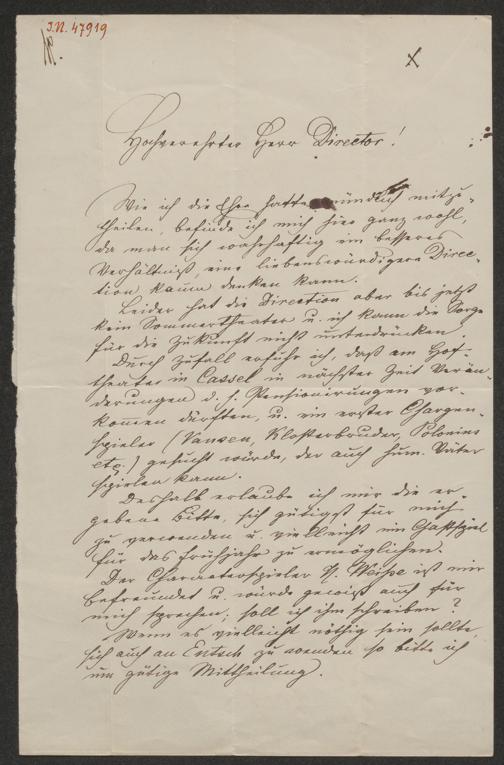 J.N. 47919
Hochverehrter Herr Director!
Wie ich die Ehre hatte mündlich mitzu-
theilen, befinde ich mich hier ganz wohl,
da man sich wahrhaftig ein besseres
Verhältniß, eine liebenswürdigere Direc-
tion kaum denken kann.
Leider hat die Direction aber bis jetzt
kein Sommertheater u. ich kann die Sorge
für die Zukunft nicht unterdrücken.
Durch Zufall erfuhr ich, daß am Hof-
theater in Cassel in nächster Zeit Verän-
derungen d. h. Pensionirungen vor-
kommen dürften, u. ein erster Chargen-
spieler (Vansen, Klosterbruder, Polonius
etc.) gesucht würde, der auch hum. Väter
spielen kann.
Deshalb erlaube ich mir die er-
gebene Bitte, sich gütigst für mich
zu verwenden u. vielleicht ein Gastspiel
für das Frühjahr zu ermöglichen.
Der Characterspieler ist mir
befreundet u. würde gewiß auch für
mich sprechen; soll ich ihm schreiben?
Wenn es vielleicht nöthig sein sollte,
sich auch an Entsch zu wenden so bitte ich
um gütige Mittheilung.